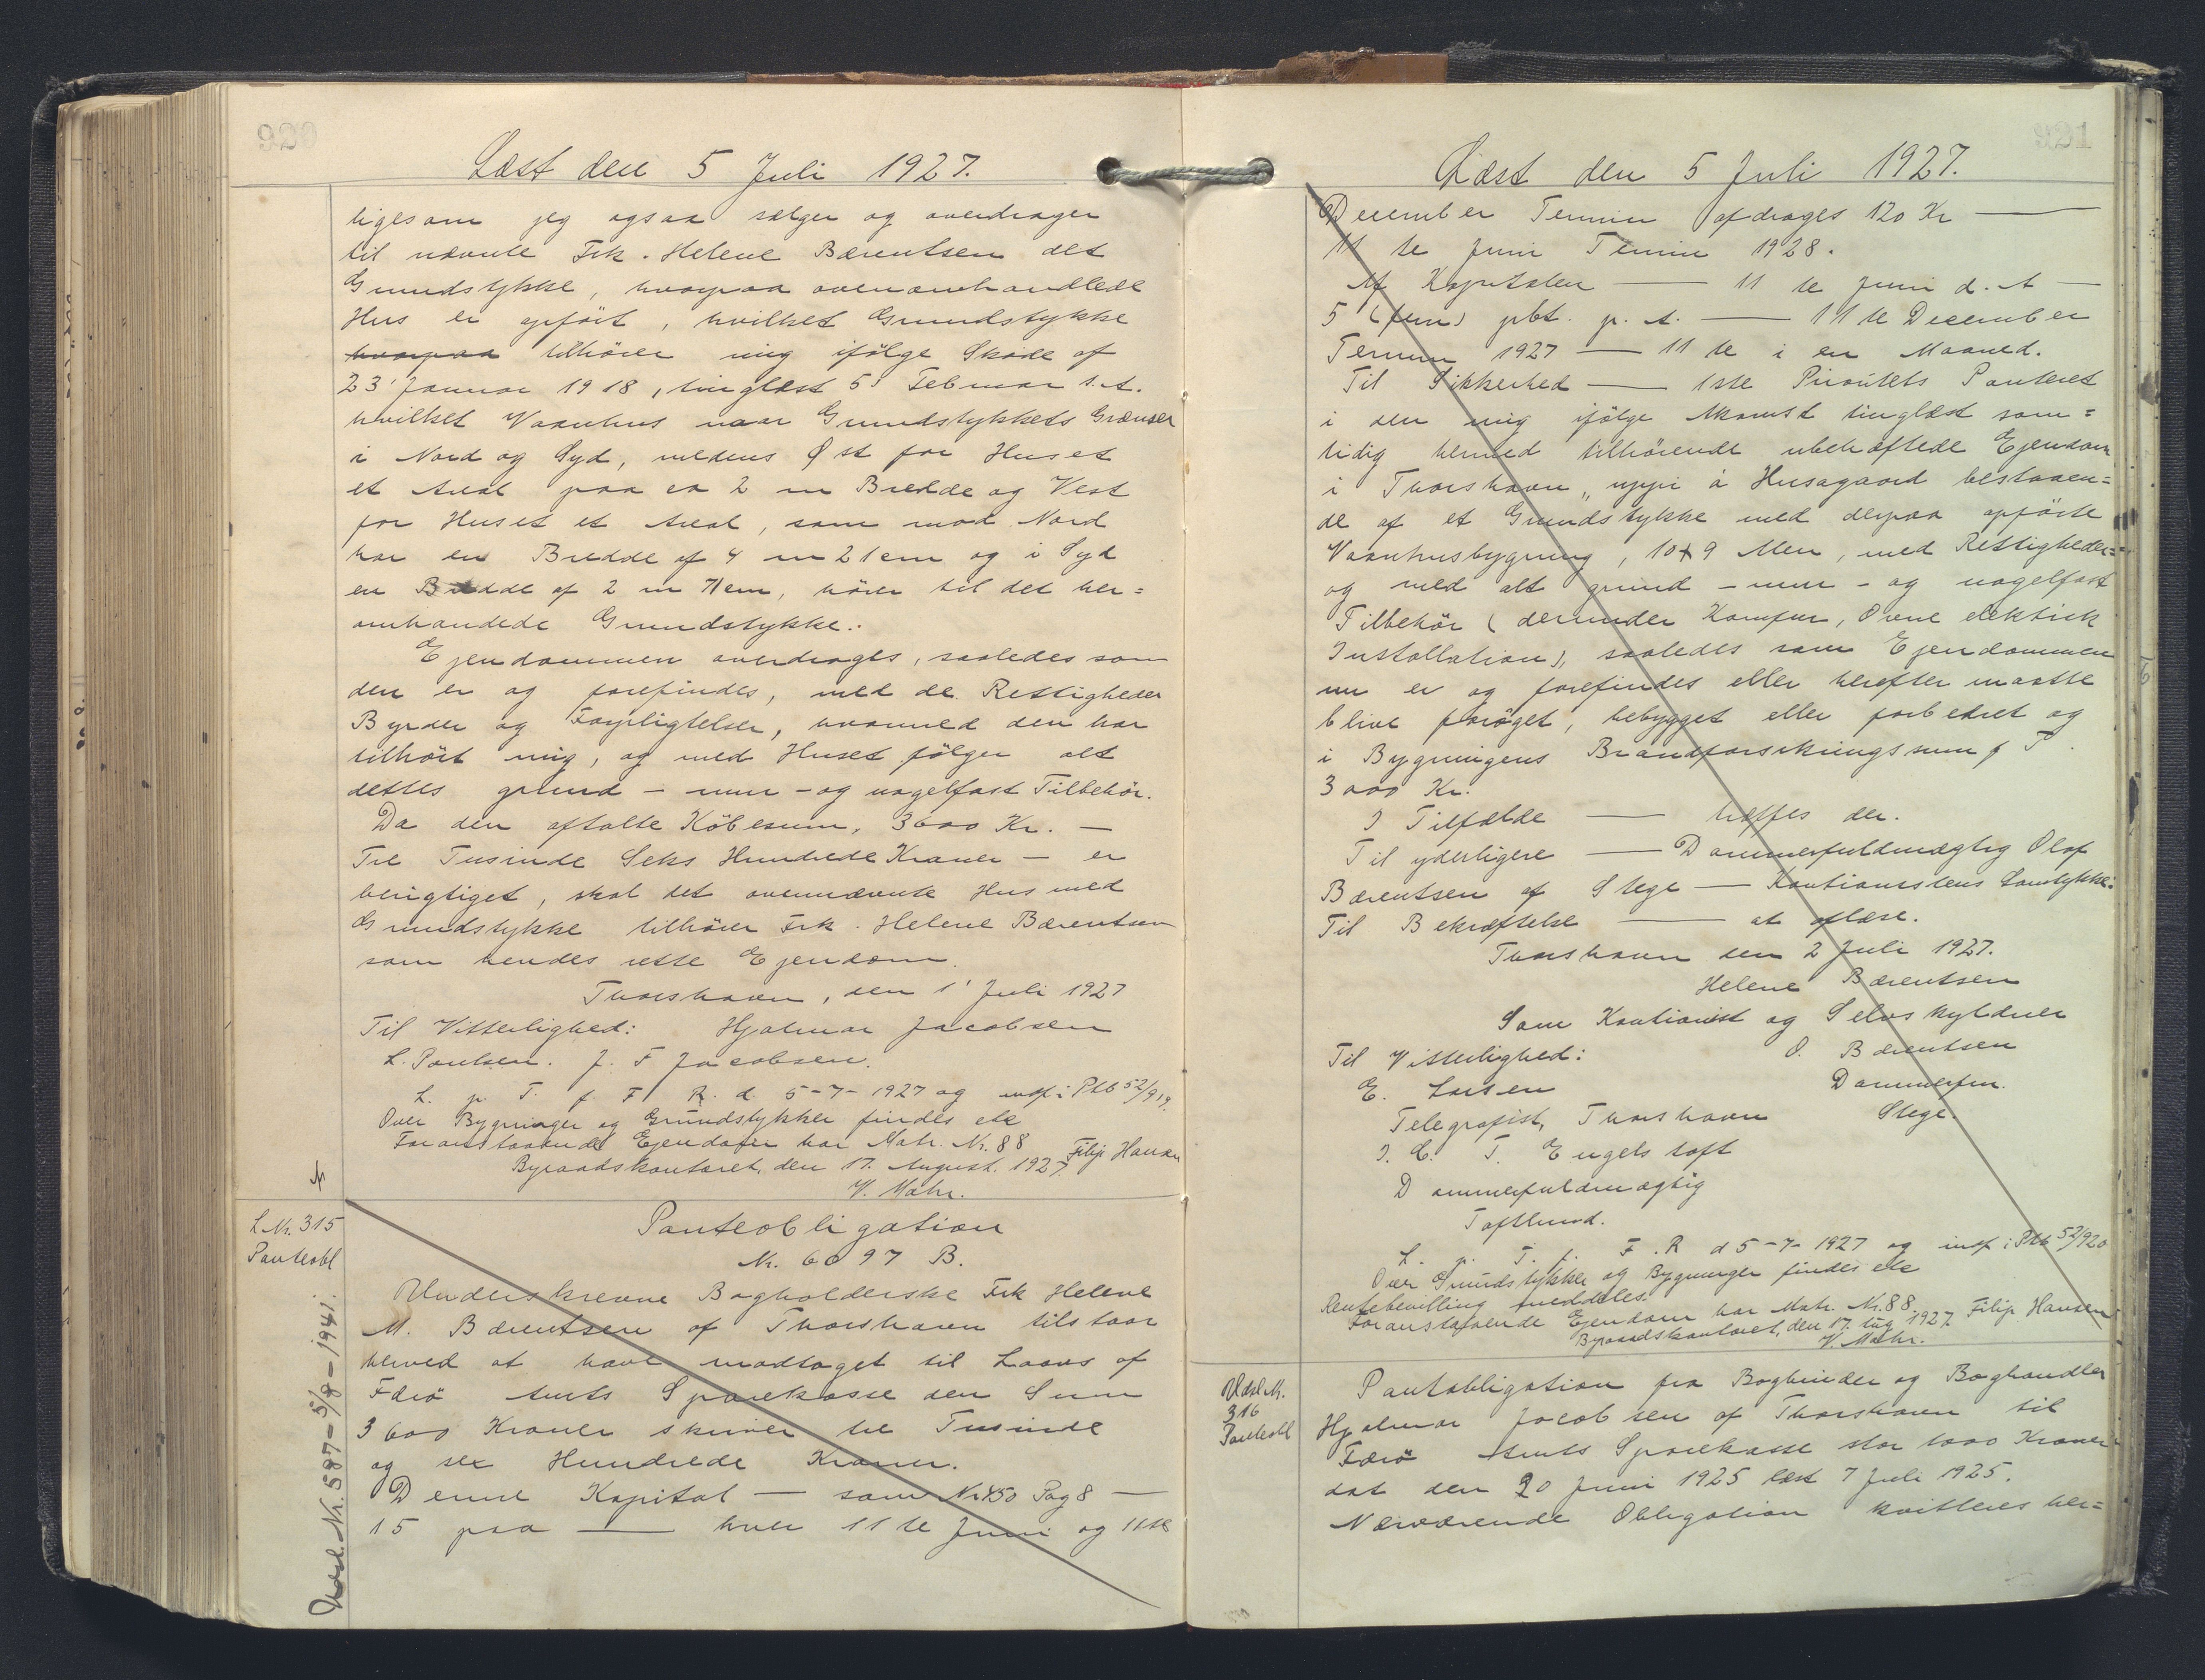 920
Læst den 5 Juli 1927.
ligesom jeg ogsaa sælger og overdrager
til nævnte Frk. Helene Bærentsen det
Grundstykke, hvorpaa ovenomhandlede
Hus er opført, hvilket Grundstykke
hvorpaa tilhører mig ifølge Skøde af
23' Januar 1918, tinglæst 5' Februar s.A.
hvilket Vaanhus naar Grundstykkets Grænser
i Nord og Syd, medens Øst for Huset
et Areal paa ca 2 m Bredde og Vest
for Huset et Areal, som mod Nord
har en Bredde af 4 m 21 cm og i Syd
en Bredde af 2 m 71 cm, hører til det her=
omhandede Grundstykke.
Ejendommen overdrages, saaledes som
den er og forefindes, med de Rettigheder
Byrder og Forpligtelser, hvormed den har
tilhørt mig, og med Huset følger alt
dettes grund- mur- og nagelfast Tilbehør.
Da den aftalte Købesum, 3600 Kr. —
Tre Tusinde Seks Hundrede Kroner — er
berigtiget, skal det ovennævnte Hus med
Grundstykke tilhører Frk. Helene Bærentsen
som hendes rette Ejendom.
Thorshavn, den 1' Juli 1927
Til Vitterlighed: Hjalmar Jacobsen
L. Poulsen. J. F Jacobsen.
L. p. T. f. F. R. d. 5-7-1927 og indf. i Ptb 52/919.
Over Bygninger og Grundstykker findes ete
Foranstaaende Ejendom har Matr. Nr. 88 Filip Hansen
Byraadskontoret, den 17. August 1927.
V. Mohr.
L.Nr. 315
Panteobl
Udsl. Nr. 587-5/8-1941.
Panteobligation
Nr. 6097 B.
Underskrevne Bogholderske Frk Helene
M. Bærentsen af Thorshavn tilstaar
herved at have modtaget til Laans af
Færø Amts Sparekasse den Sum
3600 Kroner skriver tre Tusinde
og sex Hundrede Kroner.
Denne Kapital — som Nr 450 Pag 8 —
15 paa — hver 11 te Juni og 11te
921
Læst den 5 Juli 1927.
December Termin afdrages 120 Kr —
11 te Juni Termin 1928.
Af Kapitalen — 11 te Juni d. A —
5 (fem) pct. p. A. — 11 te December
Termin 1927 — 11 te i en Maaned.
Til Sikkerhed — 1ste Prioritets Panteret
i den mig ifølge Adkomst tinglæst sam=
tidig hermed tilhørende ubehæftede Ejendom
i Thorshavn, uppi á Husagaard bestaaen=
de af et Grundstykke med derpaa opførte
Vaanhusbygning, 10 x 9 Alen, med Rettigheder=
og med alt grund- mur- og nagelfast
Tilbehør (derunder Komfur, Ovne elektrisk
Installation), saaledes som Ejendommen
nu er og forefindes eller herefter maatte
blive forøget, bebygget eller forbedret og
i Bygningens Brandforsikringssum p. T.
3000 Kr.
I Tilfælde — træffes der.
Til yderligere — Dommerfuldmægtig Olaf
Bærentsen af Stege — Kautionistens Samtykke.
Til Bekræftelse — at aflæse.
Thorshavn den 2 Juli 1927.
Helene Bærentsen
Som Kautionist og Selvskyldner
Til Vitterlighed: O. Bærentsen
E. Larsen Dommerfm.
Telegrafist, Thorshavn Stege.
J. C. T. Engelstoft
Dommerfuldmægtig
Toftlund.
L. p. T. f. F. R d 5-7-1927 og indf i Ptb 52/920
Over Grundstykker og Bygninger findes ete
Rentebevilling meddeles.
Foranstaaende Ejendom har Matr. Nr. 88. Filip Hansen
Byraadskontoret, den 17. Aug 1927.
V. Mohr.
Udsl. Nr.
316
Panteobl
Pantobligation fra Bogbinder og Boghandler
Hjalmar Jacobsen af Thorshavn til
Færø Amts Sparekasse stor 1000 Kroner
dat den 20 Juni 1925 læst 7 Juli 1925.
Nærværende Obligation kvitteres her=